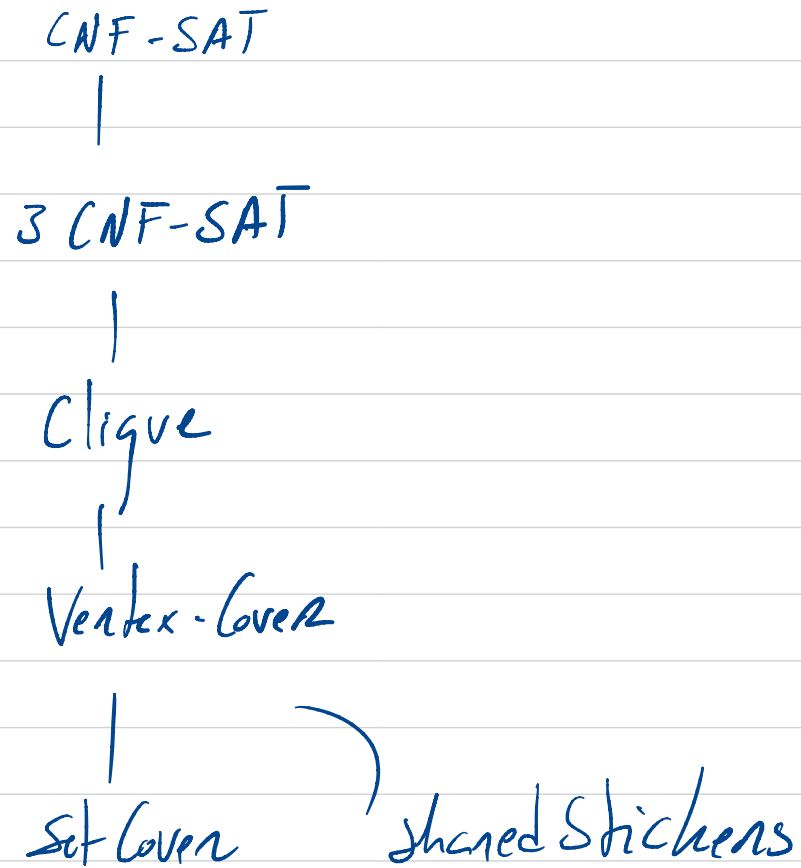 CNF-SAT
3 CNF-SAT
Clique
Vertex-Cover
Set Cover shared Stickers